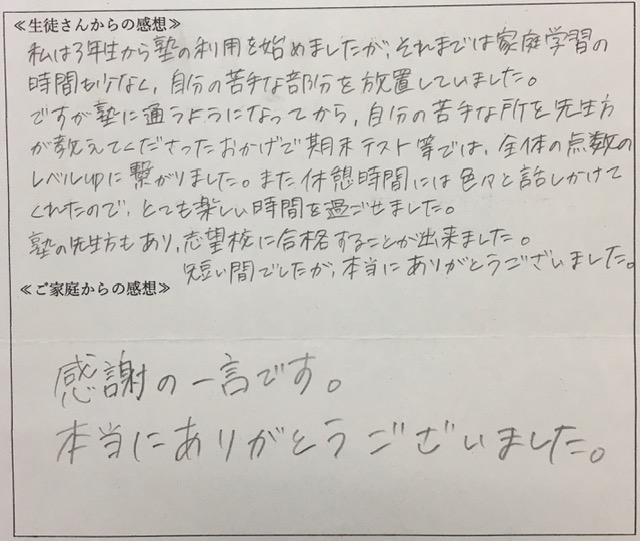 ≪生徒さんからの感想≫
私は3年生から塾の利用を始めましたが、それまでは家庭学習の
時間も少なく、自分の苦手な部分を放置していました。
ですが塾に通うようになってから、自分の苦手な所を先生方
が教えてくださったおかげで期末テスト等では、全体の点数の
レベルupに繋がりました。また休憩時間には色々と話しかけて
くれたので、とても楽しい時間を過ごせました。
塾の先生方もあり、志望校に合格することが出来ました。
短い間でしたが、本当にありがとうございました。
≪ご家庭からの感想≫
感謝の一言です。
本当にありがとうございました。